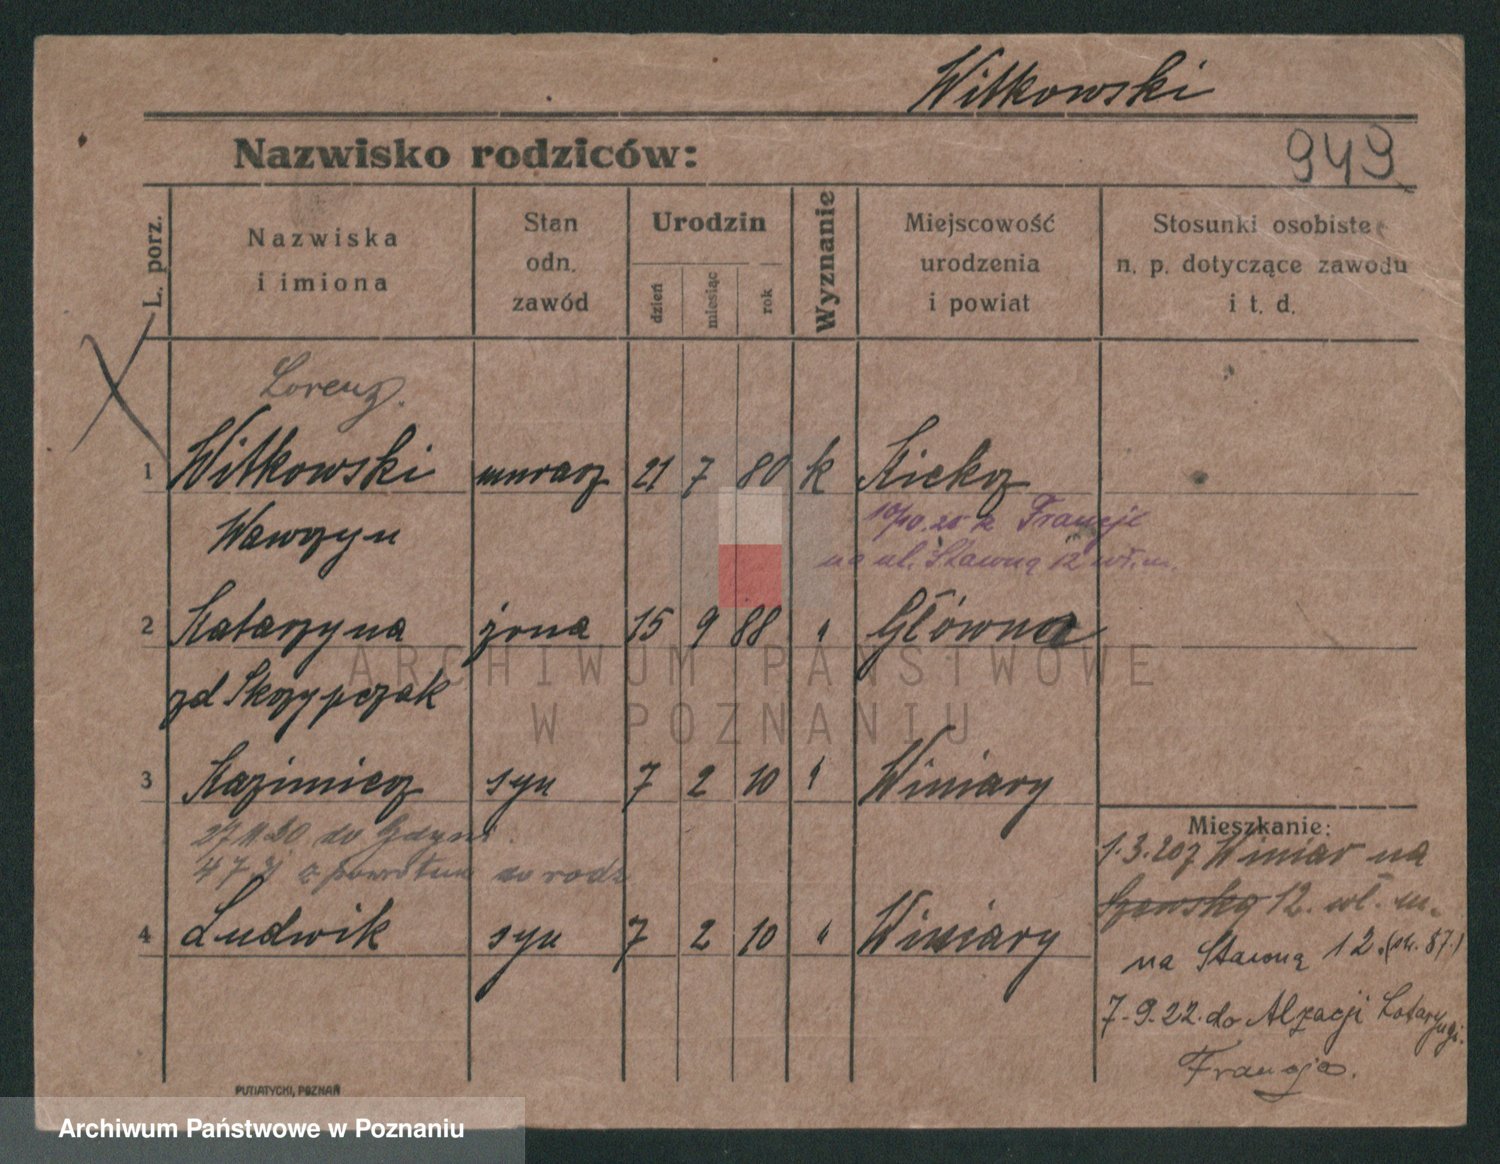 Witkowski
Nazwisko rodziców:
949
L. porz.
Nazwiska
i imiona
Stan
odn.
zawód
Urodzin
dzień
miesiąc
rok
Wyznanie
Miejscowość
urodzenia
i powiat
Stosunki osobiste
n. p. dotyczące zawodu
i t. d.
Lorenz.
1 Witkowski murarz 21 7 80 k Kiekrz
Wawrzyn
10/10.25 z Francji
na ul. Stawną 12 wł. m.
2 Katarzyna żona 15 9 88 " Główna
zd Skrzypczak
ARCHIWUM PAŃSTWOWE
W POZNANIU
3 Kazimierz syn 7 2 10 " Winiary
do Gdyni.
z powrotem do rodz
4 Ludwik syn 7 2 10 " Winiary
Mieszkanie:
1.3.20 z Winiar na
12. wł. m.
na Stawną 12.
7-9.22. do Alzacji Lotaryngi.
Francja.
PUTIATYCKI, POZNAŃ
Archiwum Państwowe w Poznaniu